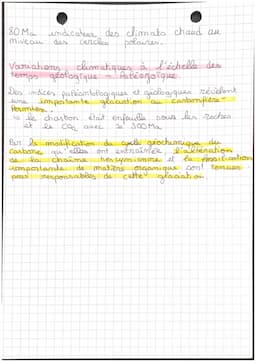 80Ma indicateur des climats chaud au
niveau des cercles polaires.
Variations climatiques à l'échelle des
temps géologique - Paléozoïque
Des indices paléontologiques et géologiques révèlent
une importante glaciation au carbonifère-
permien.
le charbon était enfouie sous les roches
et le CO2 avec
Par la modification du cycle géochimique du
carbone qu'elles ont entraînée, l'altération
de la chaîne hercynienne et la fossilisation
importante de matière organique sont tenues
pour responsables de cette glaciation.